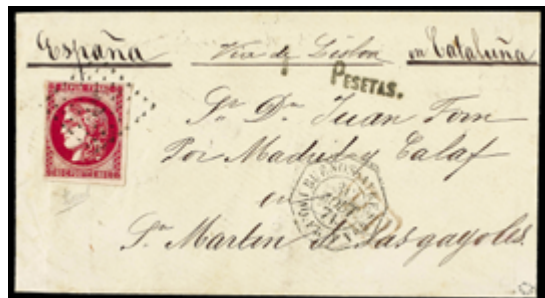 España Via de Lisboa en Cataluña
PESETAS.
REPUB. FRANC.
Sr. Dn. Juan Forn
Por Madrid y Calaf
en
Sn. Martin de Sasgayolas